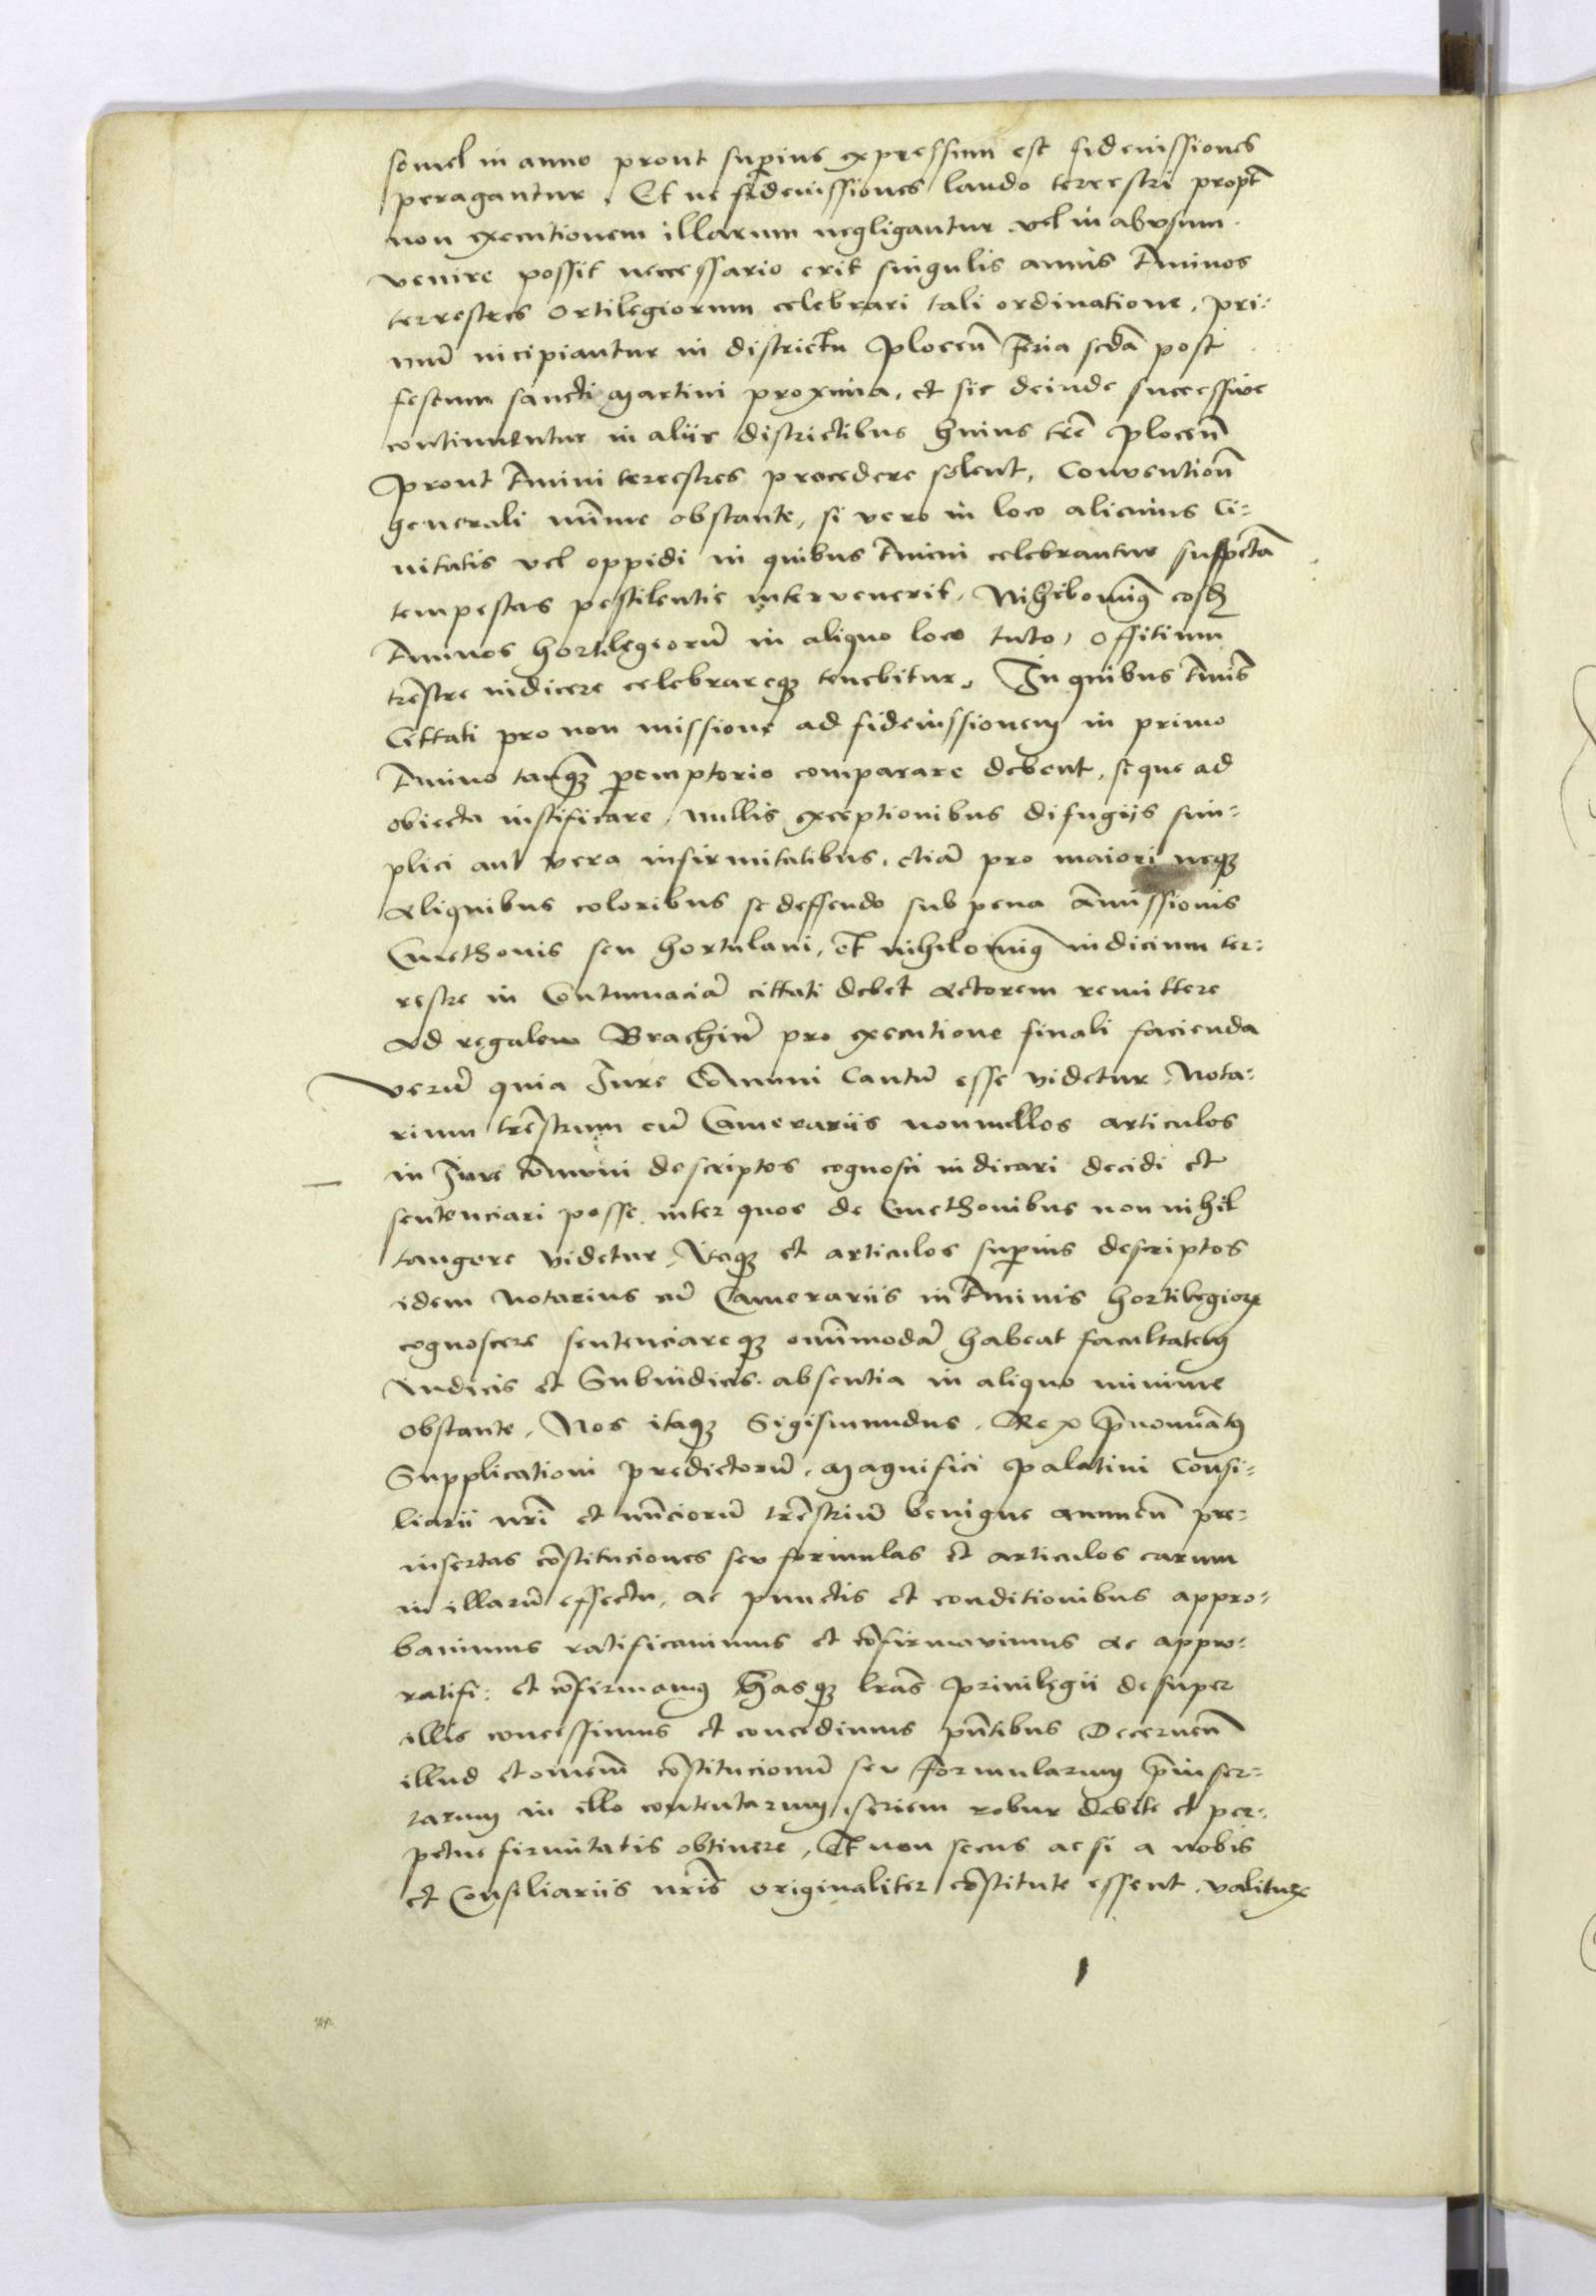 semel in anno prout superius expressum est fideiussiones
peragantur. Et ne fideiussiones laudo terrestri propt̄
non executionem illarum negligantur vel in abusum
venire possit necessario erit singulis annis tminos
terrestres ortilegiorum celebrari tali ordinatione, pri-
mu᷈ incipiantur in districtu plocen᷈ feria scda᷈ post
festum sancti Martini proxima, et sic deinde successive
continuentur in aliis districtibus huius tre᷈ plocen᷈
Prout tmini terrestres procedere solent, Convention᷈
generali mi᷈ime obstante, si vero in loco alicuius Ci-
uitatis vel oppidi in quibus tmini celebrantur suspecta᷈
tempestas pestilentie intervenerit, Nihilominq eosd
tminos hortilegiorū in aliquo loco tuto, offitium
tre᷈stre indicere celebrareqȝ tenebitur. In quibus tmis᷈
Cittati pro non missione ad fideiussionem in primo
tmino tanqȝ peremptorio comparare debent, seque ad
obiecta iustificare, nullis exceptionibus difugijs sim-
plici aut vera infirmitatibus, etia᷈ pro maiori neqȝ
aliquibus coloribus se deffendo sub pena a᷈missionis
Cmethonis seu hortulani, et nihilominq iudicium ter-
restre in Contumacia᷈ cittati debet actorem remittere
ad regalem Brachiu᷈ pro executione finali facienda
verū quia Iure Co᷈muni Cautū esse videtur, Nota-
rium tre᷈strum cū Camerariis nonnullos articulos
in Iure co᷈muni descriptos cognosci iudicari decidi et
sentenciari posse, inter quos de Cmethonibus non nihil
tangere videtur, Itaqȝ et articulos superius descriptos
idem Notarius cū Camerariis in tminis hortilegioꝝ
cognoscere sentenciareqȝ omnimoda᷈ habeat facultatem
Iudicis et Subiudicis absentia in aliquo minime
obstante, Nos itaqȝ Sigismundus Rex p᷈nominatꝰ
Supplicationi predictorū, Magnifici Palatini Consi-
liarii nr᷈i et nu᷈ciorū tre᷈striū benigne annuen᷈ pre-
insertas co᷈stituciones seu formulas et articulos earum
in illarū effectu, ac punctis et conditionibus appro-
bauimus ratificauimus et co᷈firmavimus ac appro-
ratifi: et co᷈firmamꝰ Hasqȝ lra᷈s Privilegii desuper
illis concessimus et concedimus pn᷈tibus Decernen᷈
illud et omnem᷈ co᷈stitucionū seu formularum p᷈inser-
tarum in illo contentarum seriem robur debite et per-
petue firmitatis obtinere, Et non secus ac si a nobis
et Consiliariis nr᷈is originaliter co᷈stitute essent, valituꝝ